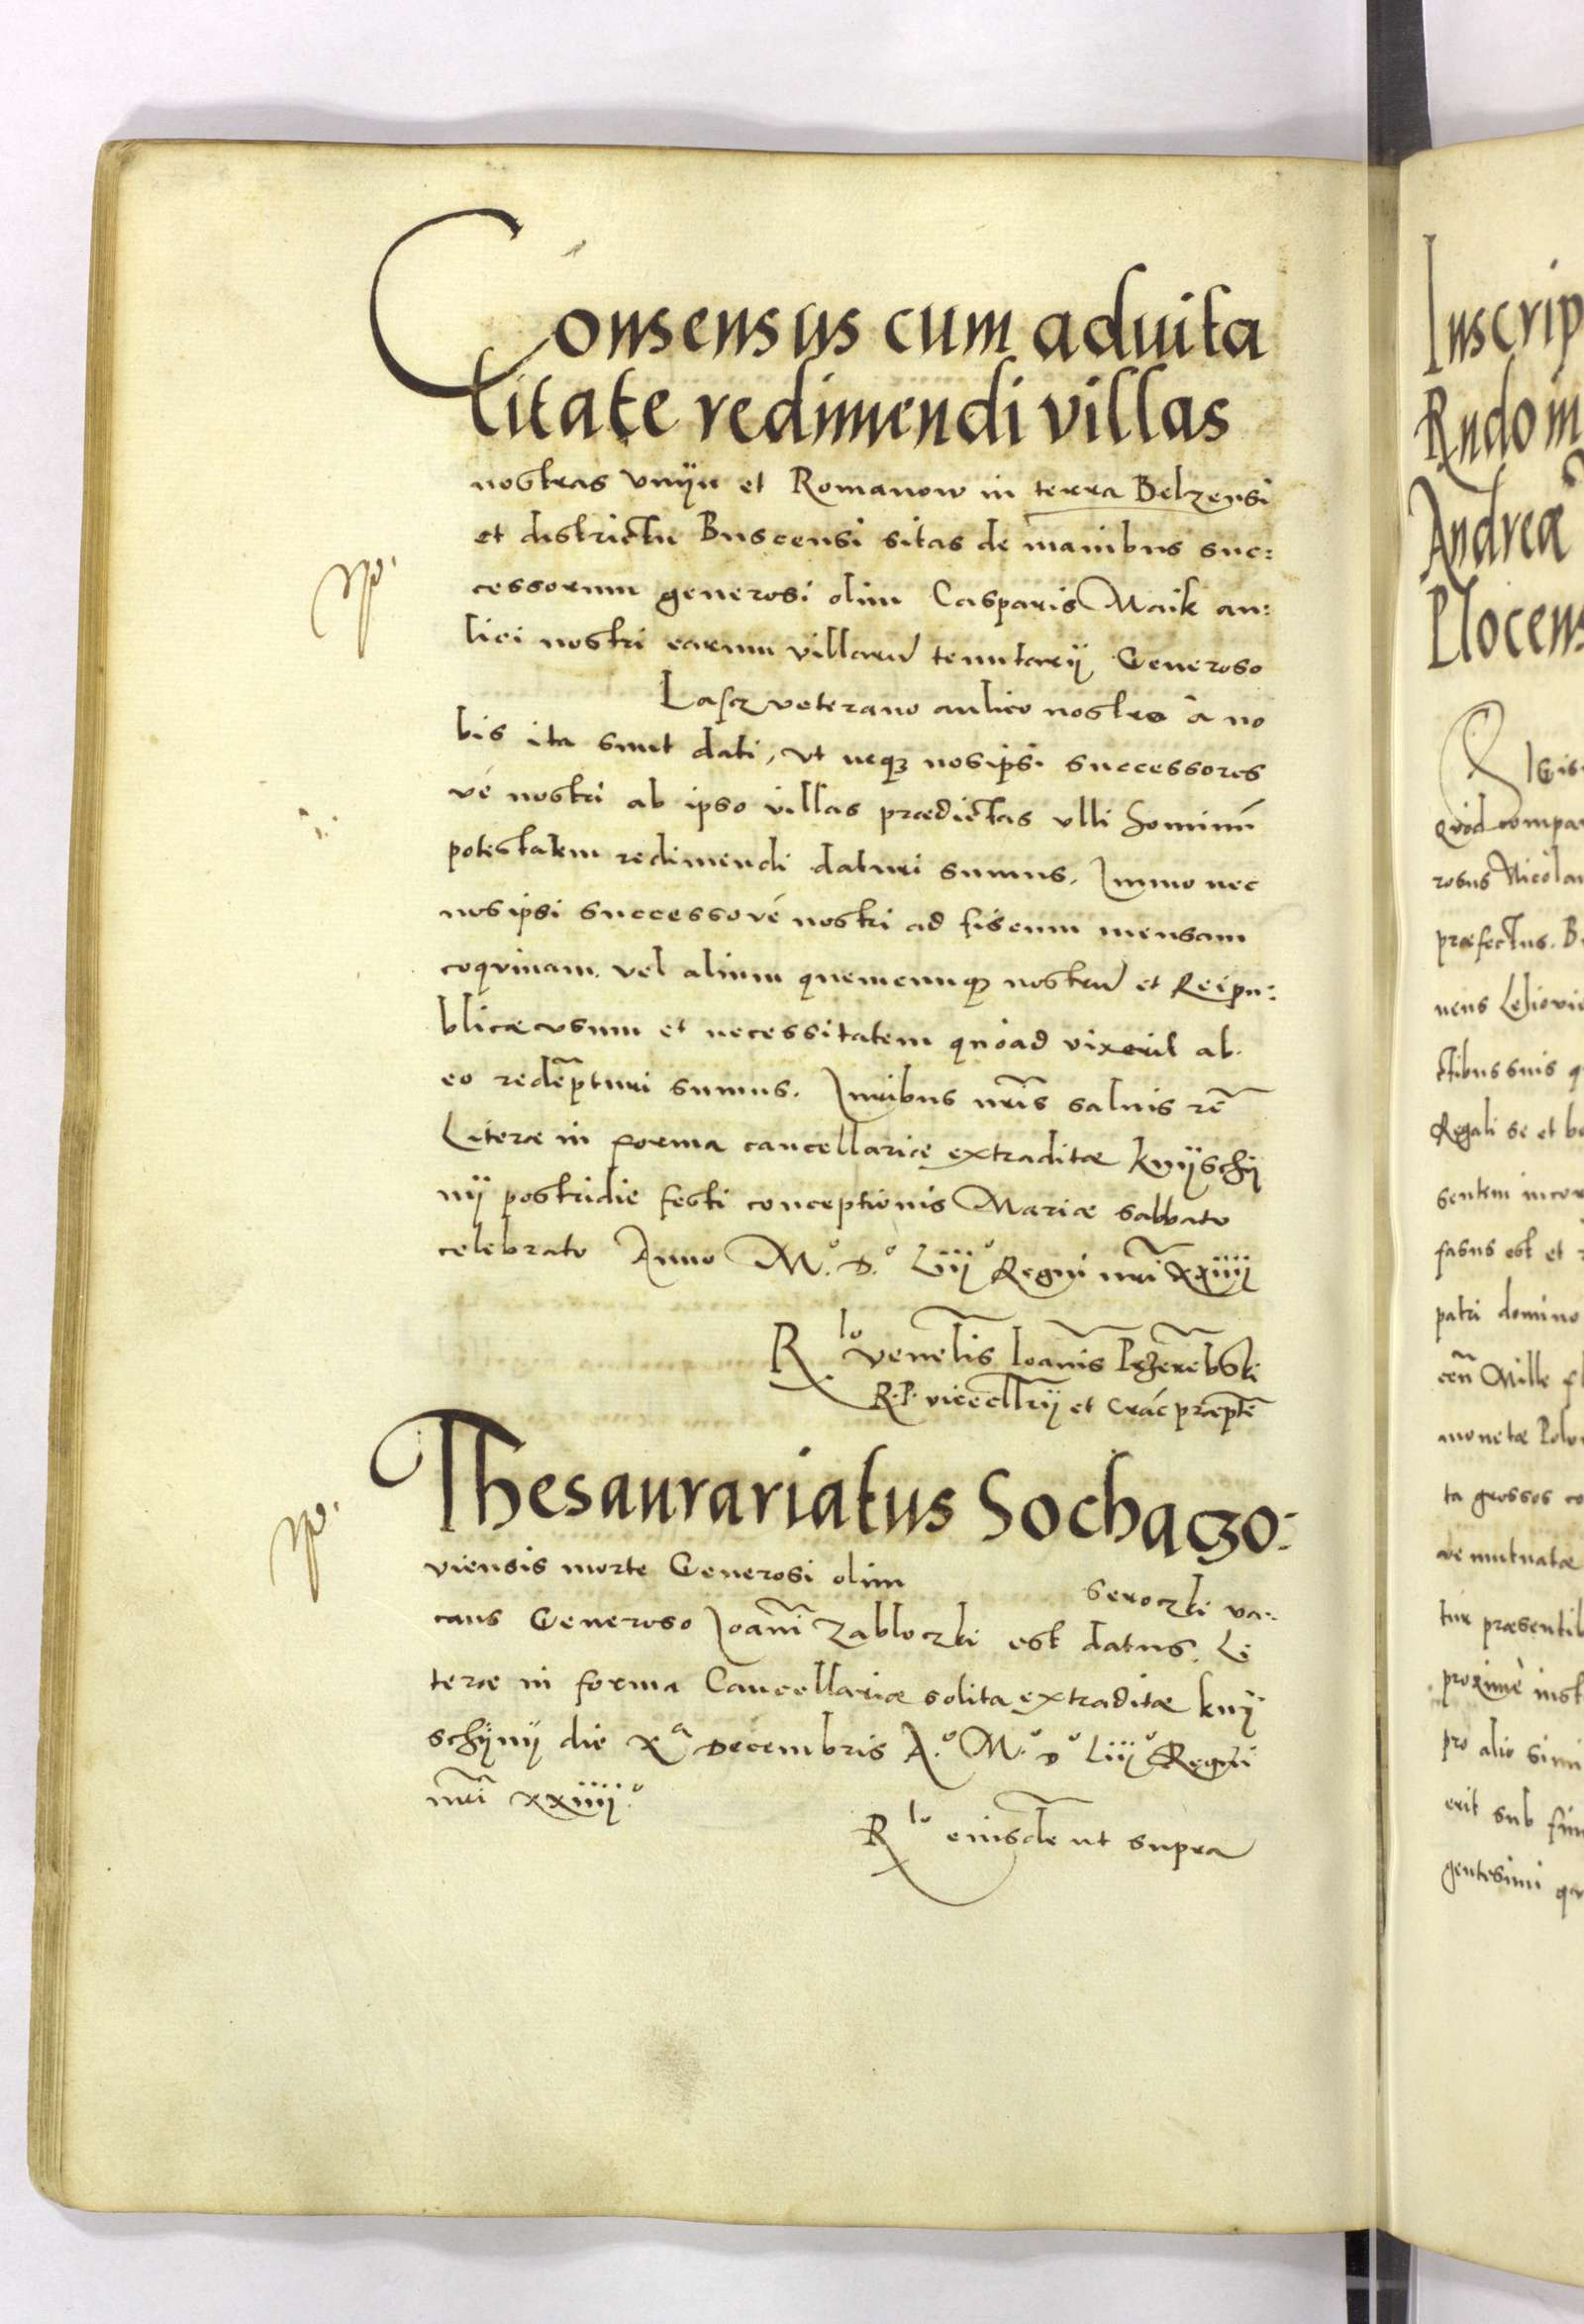 Consensus cum aduita
litate redimendi villas
nostras Vnijn et Romanow in terra Belzensi
et districtu Buscensi sitas de manibus suc:
cessorum generosi olim Casparis Maik au:
lici nostri earum villarũ tenutarij Generoso
Lascz veterano aulico nostro à no
bis ita sunt dati, vt neq3 nosipsi successores
vé nostri ab ipso villas prædictas vlli hominũ
potestatem redimendi daturi sumus. Immo nec
nosipsi successorvé nostri ad fiscum mensam
coqvinam. vel alium quemcunq3 nostrũ et Reipu:
blicæ vsum et necessitatem quoad vixerit ab
eo redẽpturi sumus. Iuribus nr̃is saluis rẽ
Literæ in forma cancellariæ extraditæ knÿschÿ
nij postridie festi conceptionis Mariæ sabbato
celebrato Anno M.º D.º Liij.º Regni nr̃i xxiiij
R.lo venelis̃ Ioañis Przerẽbski
R.P. vicecllr̃ij et Crac̃ præptẽ
Thesaurariatus Sochaczo:
viensis morte Generosi olim Seroczki va:
cans Generoso Ioañi Zabloczki est datus. Li
teræ in forma Cancellariæ solita extraditæ knÿ
schÿnij die Xª Decembris A.º M.º D.º Liij.º Regni
nr̃i xxiiij.º
R.lo eiusdẽ ut supra
Inscrip
Rndo in
Andreæ
Plocens
Sigis
Qvod compar
rosus Nicolau
præfectus. B
sentem incor
fasus est et
patri domino
cen̄ Mille fl
monetæ Polo
ta grossos co
ve mutuatæ
tur præsentib
proximè inst
pro alio simi
erit sub
gentesimi